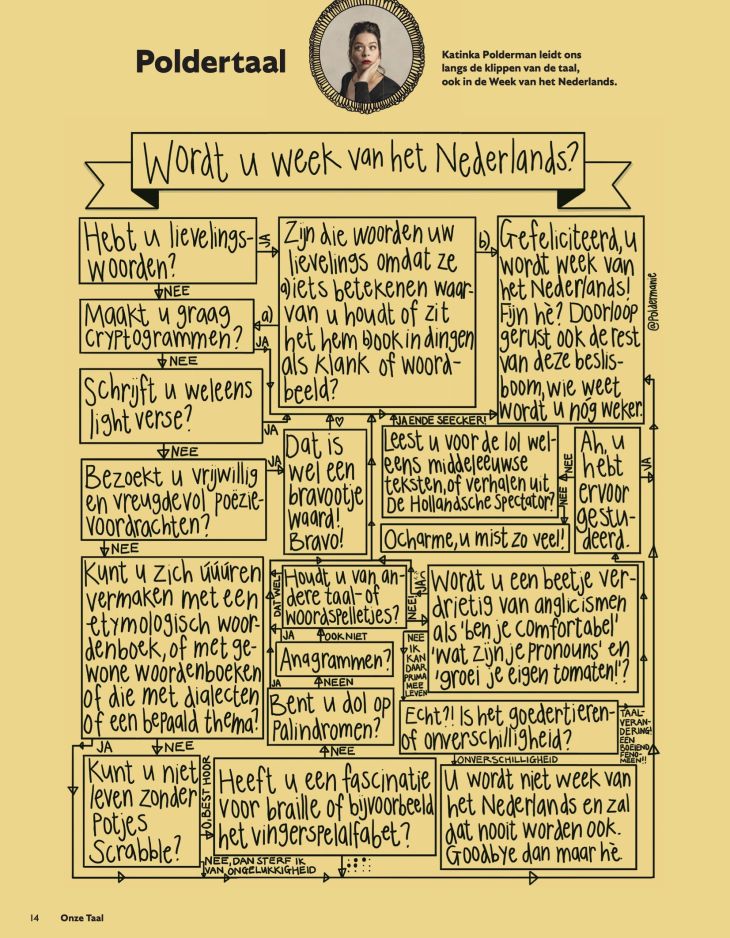 Poldertaal
Katinka Polderman leidt ons
langs de klippen van de taal,
ook in de Week van het Nederlands.
Wordt u week van het Nederlands?
Hebt u lievelings-
woorden?
JA
NEE
Zijn die woorden uw
lievelings omdat ze
a) iets betekenen waar-
van u houdt of zit
het hem b) ook in dingen
als klank of woord-
beeld?
a)
b)
Gefeliciteerd, u
wordt week van
het Nederlands!
Fijn hè? Doorloop
gerust ook de rest
van deze beslis-
boom, wie weet
wordt u nóg weker.
@Poldermanie
Maakt u graag
cryptogrammen?
JA
NEE
Schrijft u weleens
light verse?
JA
NEE
Bezoekt u vrijwillig
en vreugdevol poëzie-
voordrachten?
JA
NEE
Dat is
wel een
bravootje
waard!
Bravo!
JA ENDE SEECKER!
Leest u voor de lol wel-
eens middeleeuwse
teksten, of verhalen uit
De Hollandsche Spectator?
NEE
NEE
Ocharme, u mist zo veel!
Ah, u
hebt
ervoor
gestu-
deerd.
JA
Kunt u zich úúúren
vermaken met een
etymologisch woor-
denboek, of met ge-
wone woordenboeken
of die met dialecten
of een bepaald thema?
JA
NEE
DAT WEL
Houdt u van an-
dere taal- of
woordspelletjes?
JA
NEE
JA
OOK NIET
Anagrammen?
JA
NEEN
Bent u dol op
Palindromen?
NEE
Wordt u een beetje ver-
drietig van anglicismen
als 'ben je comfortabel'
'wat zijn je pronouns' en
'groei je eigen tomaten!'?
NEE
IK
KAN
DAAR
PRIMA
MEE
LEVEN
Echt?! Is het goedertieren-
of onverschilligheid?
TAAL-
VERAN-
DERING!
EEN
BOEIEND
FENO-
MEEN!!
ONVERSCHILLIGHEID
Kunt u niet
leven zonder
potjes
Scrabble?
O, BEST HOOR
NEE, DAN STERF IK
VAN ONGELUKKIGHEID
Heeft u een fascinatie
voor braille of bijvoorbeeld
het vingerspelalfabet?
U wordt niet week van
het Nederlands en zal
dat nooit worden ook.
Goodbye dan maar hè.
14 Onze Taal